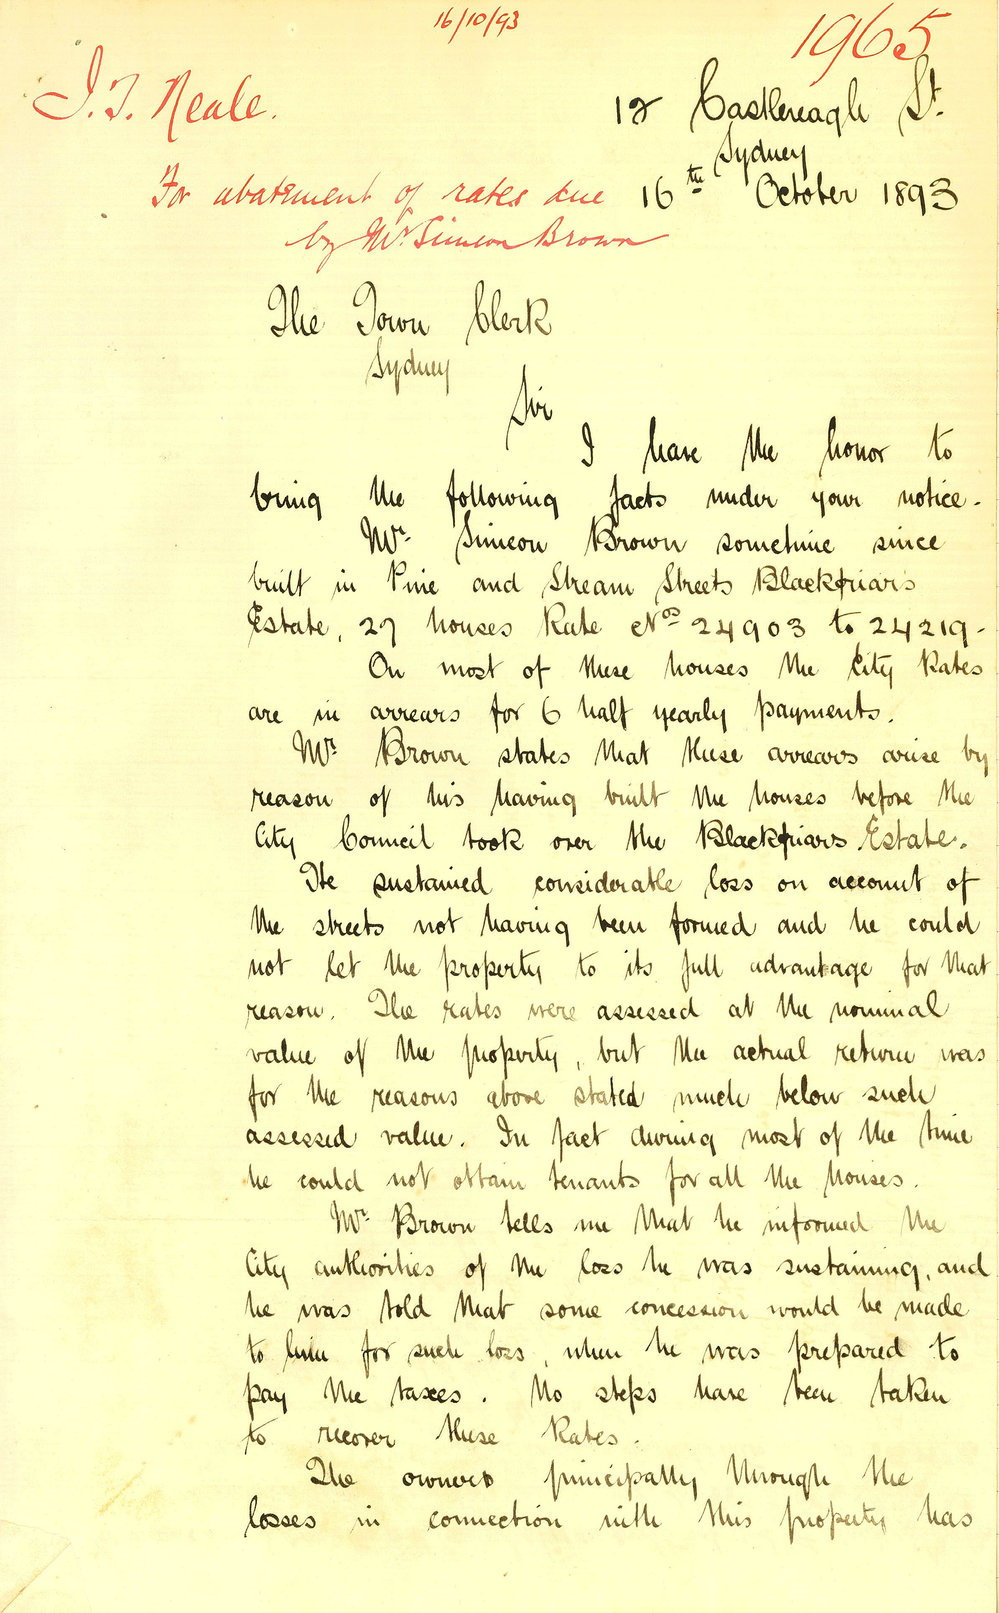 16/10/93
1965
J. J. Neale.
12 Castlereagh St.
Sydney
For abatement of rates due
16th October 1893
by Mr Simeon Brown
The Town Clerk
Sydney
Sir
I have the honor to
bring the following facts under your notice.
Mr. Simeon Brown sometime since
built in Pine and Stream Streets Blackfriars
Estate, 27 houses Rate Nos 24903 to 24219.
On most of these houses the City Rates
are in arrears for 6 half yearly payments.
Mr. Brown states that these arrears arise by
reason of his having built the houses before the
City Council took over the Blackfriars Estate.
He sustained considerable loss on account of
the streets not having been formed and he could
not let the property to its full advantage for that
reason. The rates were assessed at the nominal
value of the property, but the actual return was
for the reasons above stated much below such
assessed value. In fact during most of the time
he could not obtain tenants for all the houses.
Mr. Brown tells me that he informed the
City authorities of the loss he was sustaining, and
he was told that some concession would be made
to him for such loss, when he was prepared to
pay the taxes. No steps have been taken
to recover these Rates.
The owners principally through the
losses in connection with this property has